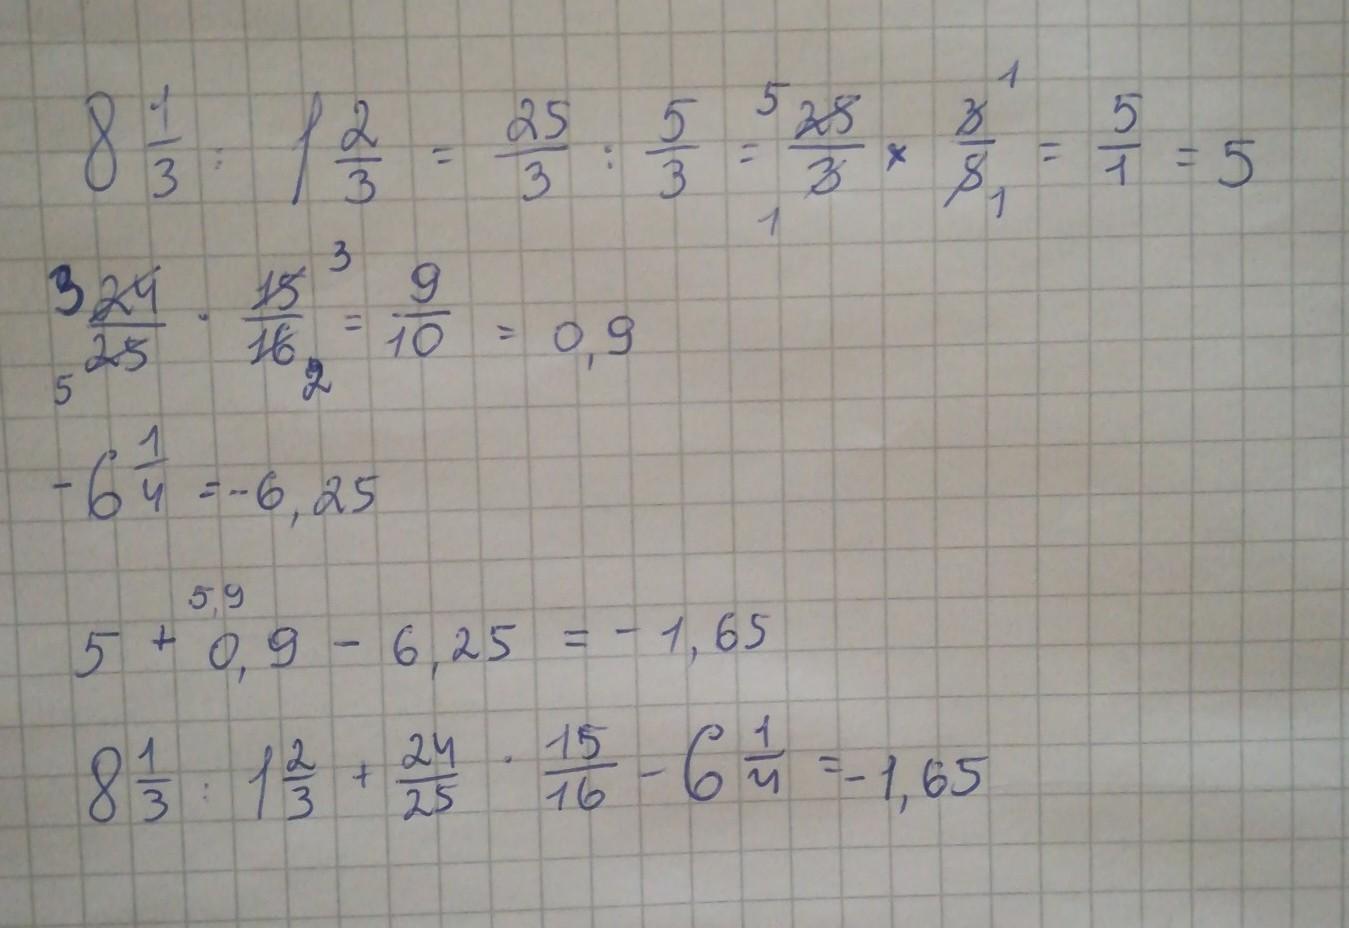 8 1/3 : 1 2/3 = 25/3 : 5/3 = 5 25/3 1 × 3/5 1 1 = 5/1 = 5
3 24/25 5 · 15/16 3 2 = 9/10 = 0,9
-6 1/4 = -6,25
5,9
5 + 0,9 - 6,25 = -1,65
8 1/3 : 1 2/3 + 24/25 · 15/16 - 6 1/4 = -1,65